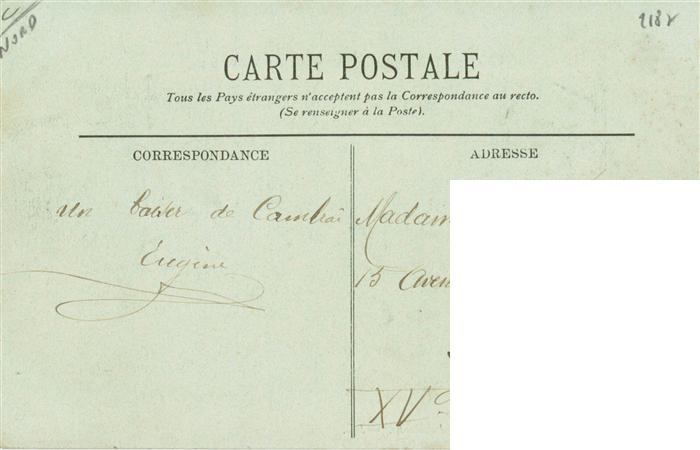 NORD
218V
CARTE POSTALE
Tous les Pays étrangers n'acceptent pas la Correspondance au recto.
(Se renseigner à la Poste).
CORRESPONDANCE
un baiser de Cambrai
Eugène
ADRESSE
Madam
15 Aven
XVe